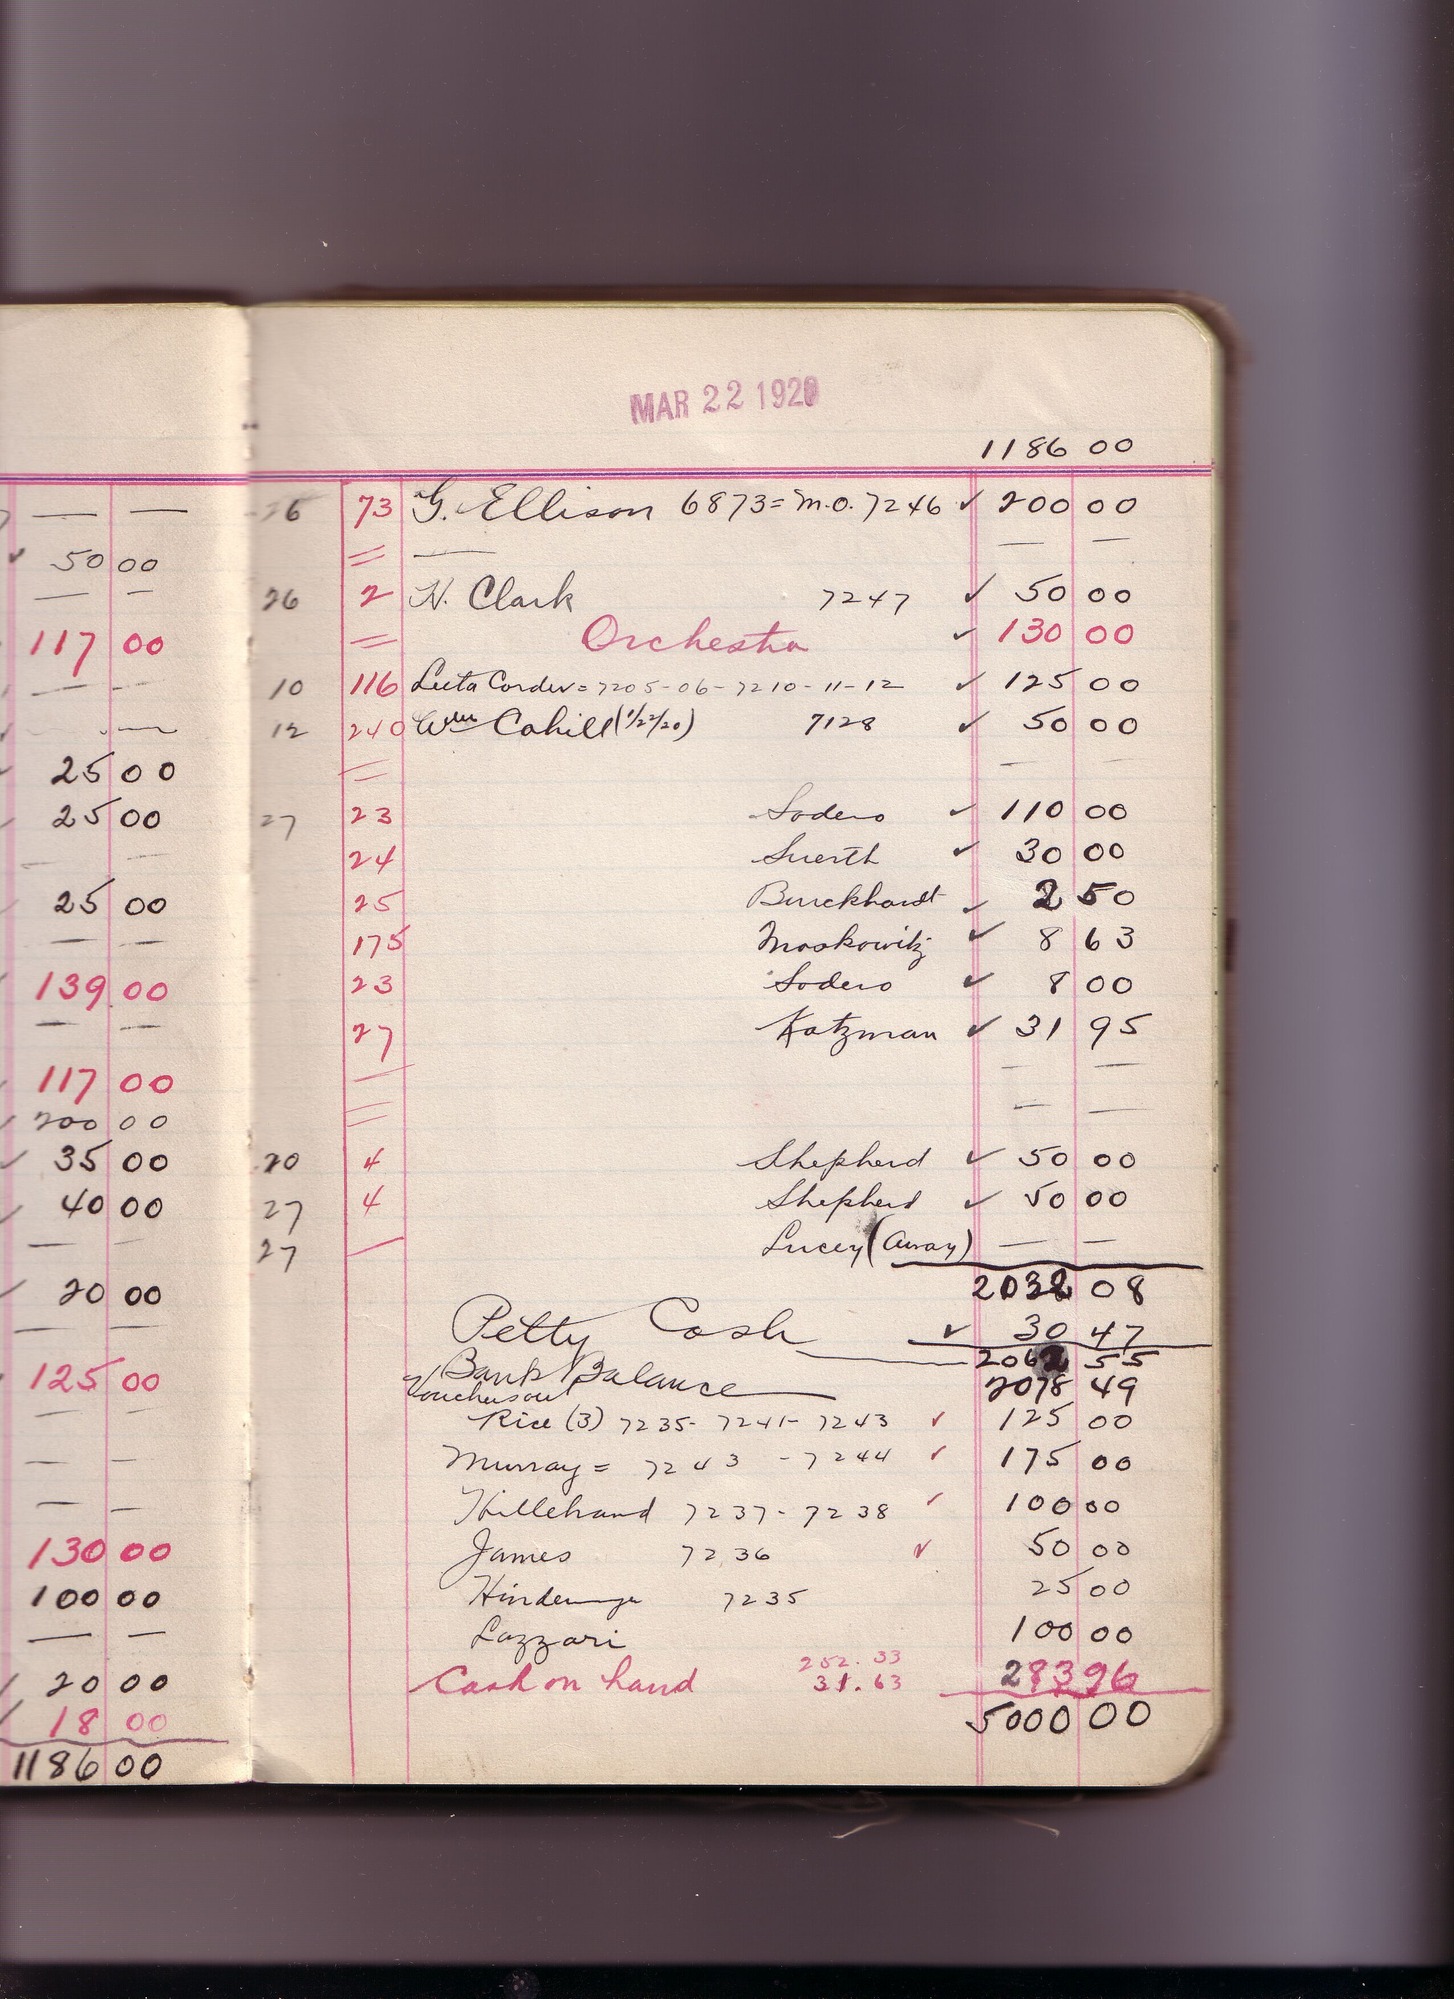 50 00
117 00
25 00
25 00
25 00
139 00
117 00
200 00
35 00
40 00
20 00
125 00
130 00
100 00
20 00
18 00
1186 00
MAR 22 1920
1186 00
26 73 G. Ellison 6873 = M.O. 7246 ✓ 200 00
26 2 H. Clark 7247 ✓ 50 00
Orchestra ✓ 130 00
10 116 Leeta Corder = 7205-06-7210-11-12 ✓ 125 00
12 240 Wm Cahill (1/22/20) 7128 ✓ 50 00
27 23 Sodero ✓ 110 00
24 Suerth ✓ 30 00
25 Burckhardt ✓ 2 50
175 Moskowitz ✓ 8 63
23 Sodero ✓ 8 00
27 Katzman ✓ 31 95
20 4 Shepherd ✓ 50 00
27 4 Shepherd ✓ 50 00
27 — Lucey (Away) — —
2032 08
Petty Cash ✓ 30 47
2062 55
Bank Balance 2078 49
Vouchers out
Rice (3) 7235- 7241- 7243 ✓ 125 00
Murray = 7243 - 7244 ✓ 175 00
Hillebrand 7237 - 7238 ✓ 100 00
James 7236 ✓ 50 00
7235 25 00
Lazzari 100 00
252.33
Cash on hand 31.63 283 96
5000 00